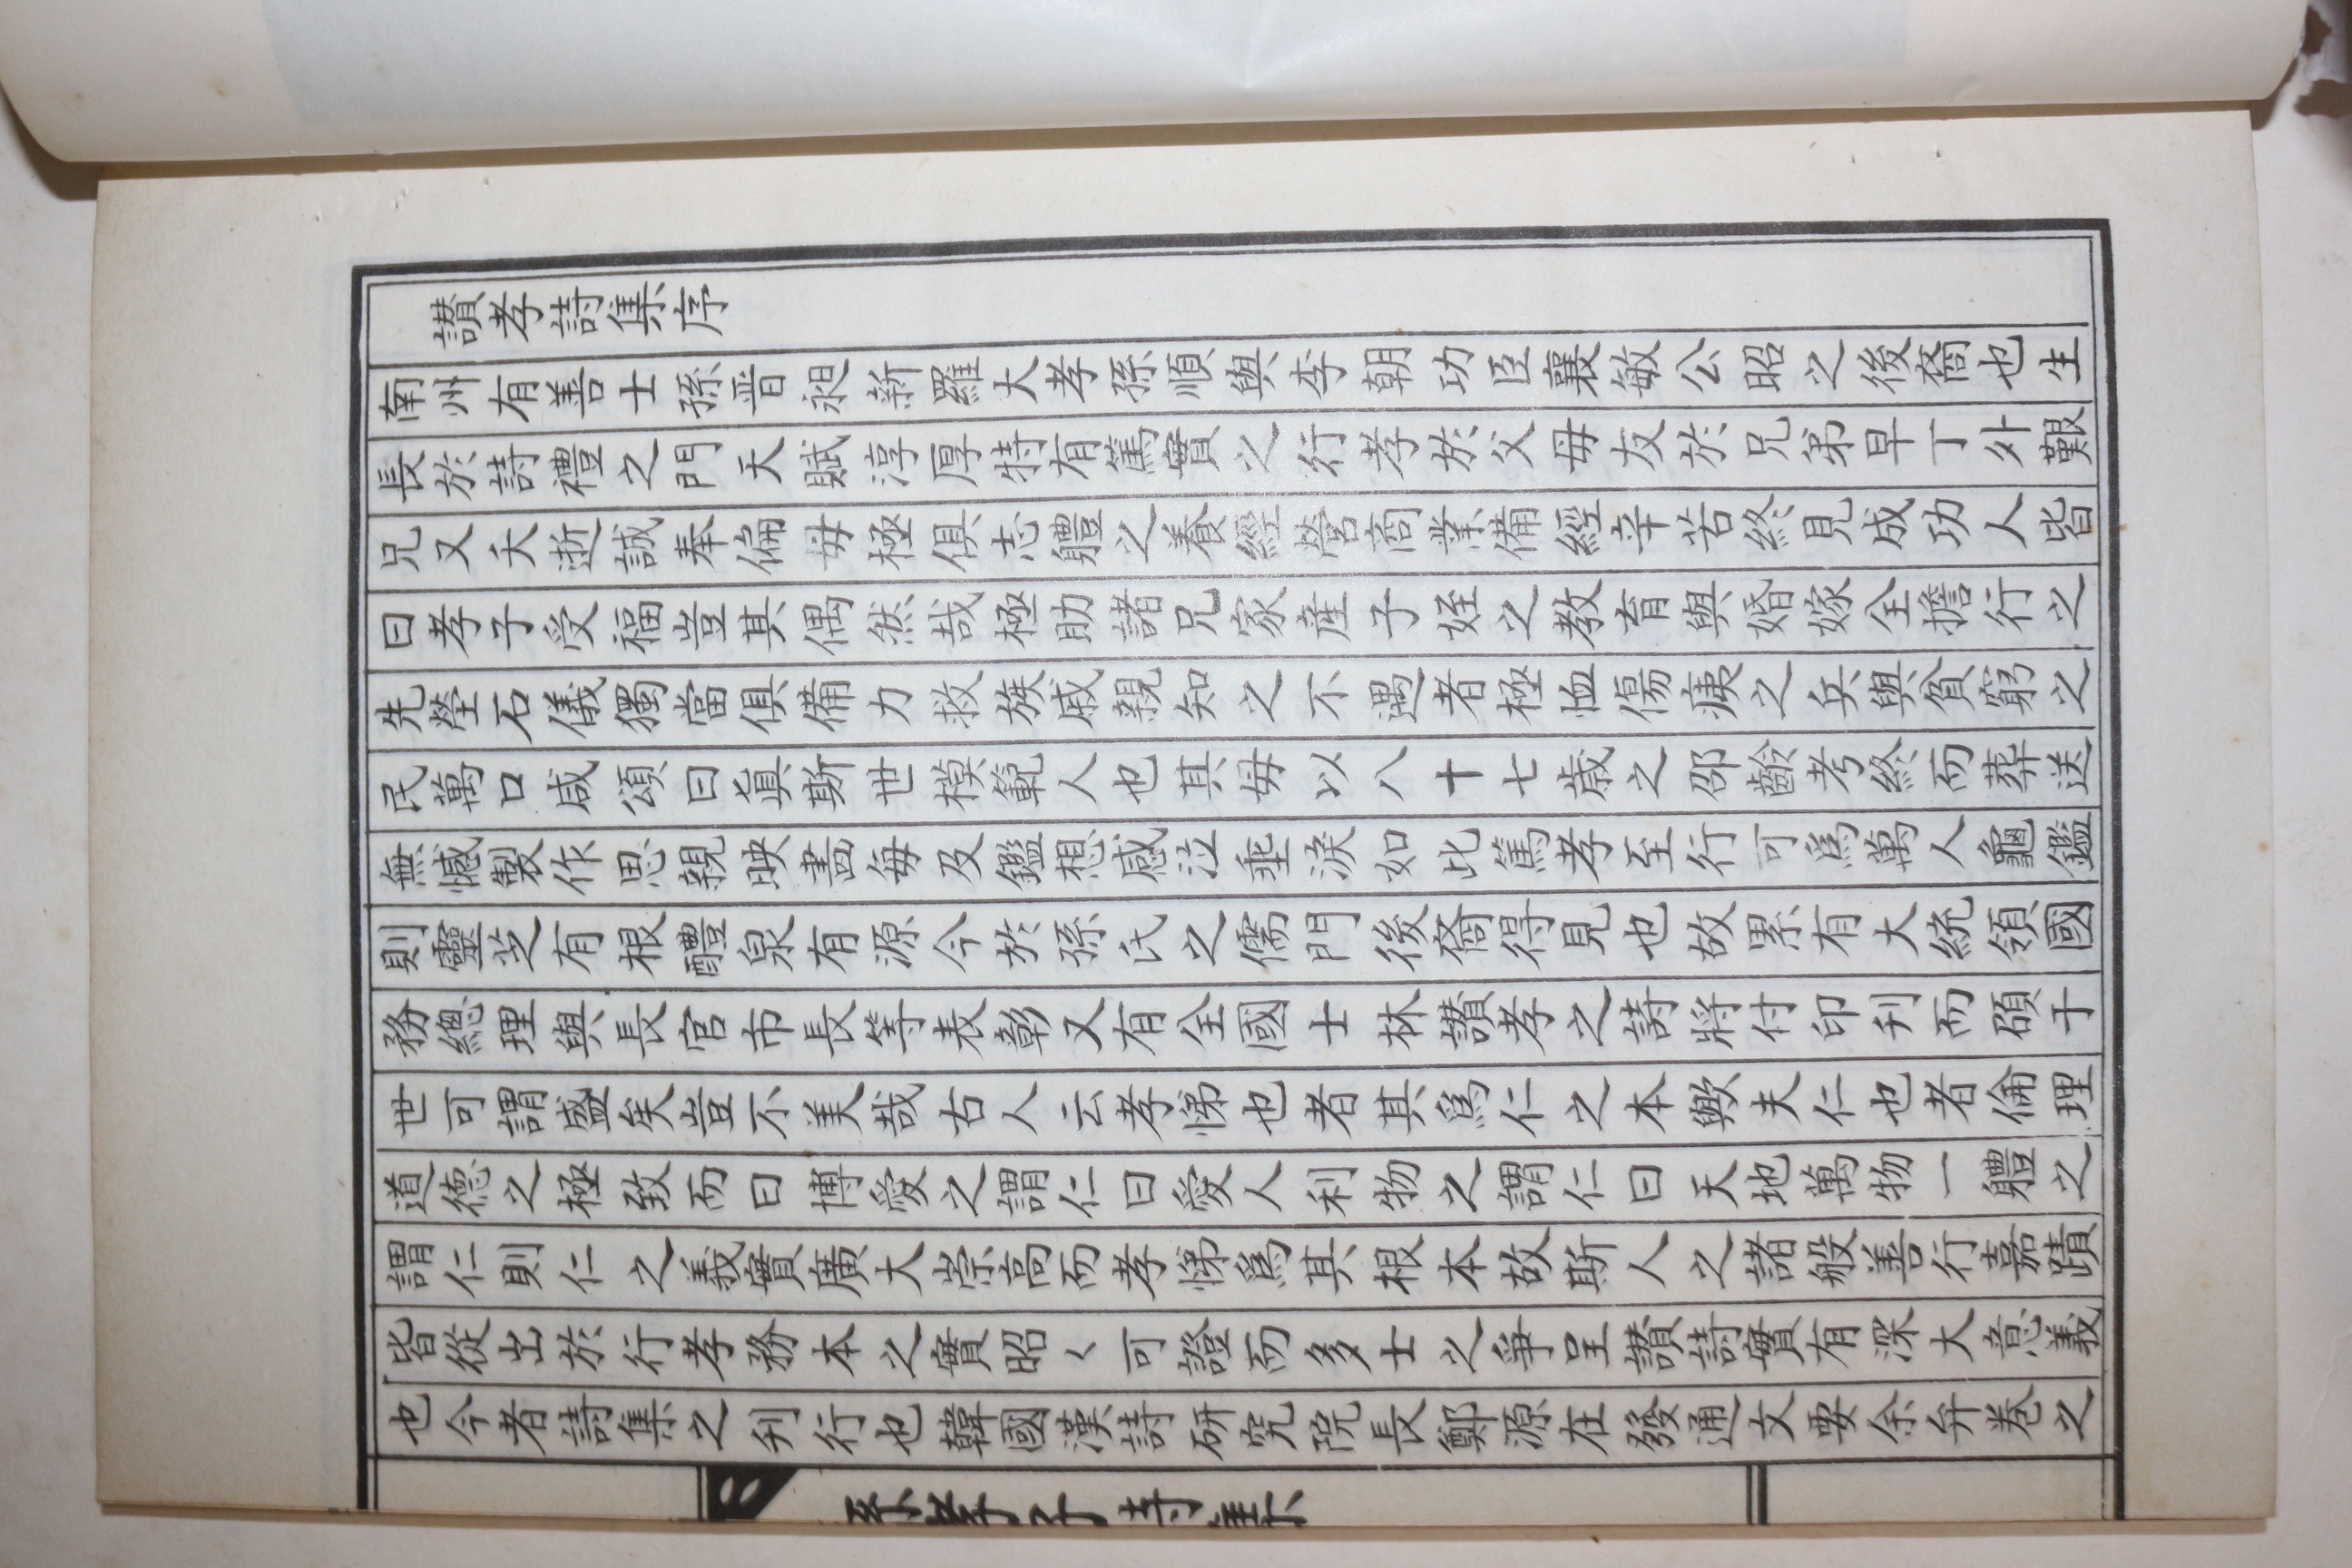 讃孝詩集序
南州有善士孫晋昶新羅大孝孫順與李朝功臣襄敏公昭之後裔也生
長於詩禮之門天賦淳厚特有篤實之行孝於父母友於兄弟早丁外艱
兄又夭逝誠奉偏母極俱志軆之養經營商業備經辛苦終見成功人皆
曰孝子受福豈其偶然哉極助諸兄家産子姪之教育與婚嫁全擔行之
先塋石儀獨當俱備力救族戚親知之不遇者極恤傷痍之兵與貧窮之
民萬口咸頌曰眞斯世模範人也其母以八十七歲之邵齡考終而葬送
無憾製作思親映畵每及鑑想感泣垂淚如此篤孝至行可爲萬人龜鑑
則靈芝有根醴泉有源今於孫氏之儒門後裔得見也故累有大統領國
務總理與長官市長等表彰又有全國士林讃孝之詩將付印刋而碩于
世可謂盛矣豈不美哉古人云孝悌也者其爲仁之本歟夫仁也者倫理
道德之極致而曰博愛之謂仁曰愛人利物之謂仁曰天地萬物一軆之
謂仁則仁之義實廣大崇高而孝悌爲其根本故斯人之諸般善行嘉蹟
皆從出於行孝務本之實昭〱可證而多士之爭呈讃詩實有深大意義
也今者詩集之刋行也韓國漢詩研究院長鄭源在發通文要余弁卷之
孫孝子詩集